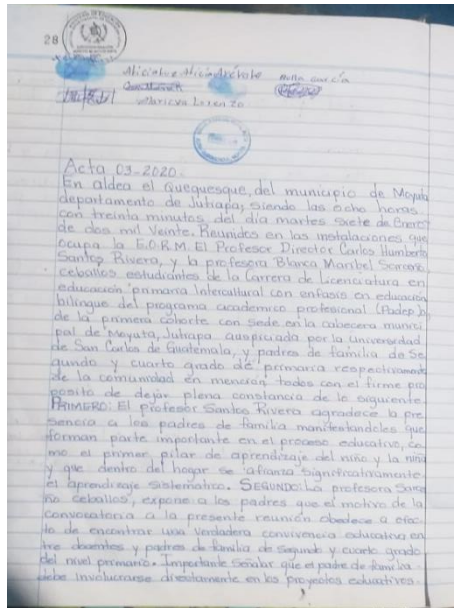 28
Alicia Arévalo
García
Maricza Lorenzo
Acta 03-2020.
En aldea el Quequesque, del municipio de Moyuta
departamento de Jutiapa, siendo las ocho horas
con treinta minutos del día martes siete de Enero
de dos mil Veinte. Reunidos en las instalaciones que
ocupa la E.O.R.M. El Profesor Director Carlos Humberto
Santos Rivera, y la profesora Blanca Maribel
ceballos estudiantes de la Carrera de Licenciatura en
educación primaria Intercultural con enfasis en educación
bilingüe del programa academico profesional (Padep),
de la primera cohorte con sede en la cabecera munici
pal de Moyuta, Jutiapa auspiciada por la universidad
de San Carlos de Guatemala, y padres de familia de Se
gundo y cuarto grado de primaria respectivamente
de la comunidad en mención todos con el firme pro
posito de dejar plena constancia de lo siguiente.
PRIMERO: El profesor Santos Rivera agradece la pre
sencia a los padres de familia manifestandoles que
forman parte importante en el proceso educativo, co
mo el primer pilar de aprendizaje del niño y la niña
y que dentro del hogar se afianza significativamente
el aprendizaje sistematico. SEGUNDO: La profesora
ño ceballos, expone a los padres que el motivo de la
convocatoria a la presente reunión obedece a efec
to de encontrar una verdadera convivencia educativa en
tre docentes y padres de familia de Segundo y cuarto grado
del nivel primario. Importante señalar que el padre de familia
debe involucrarse directamente en los proyectos educativos.